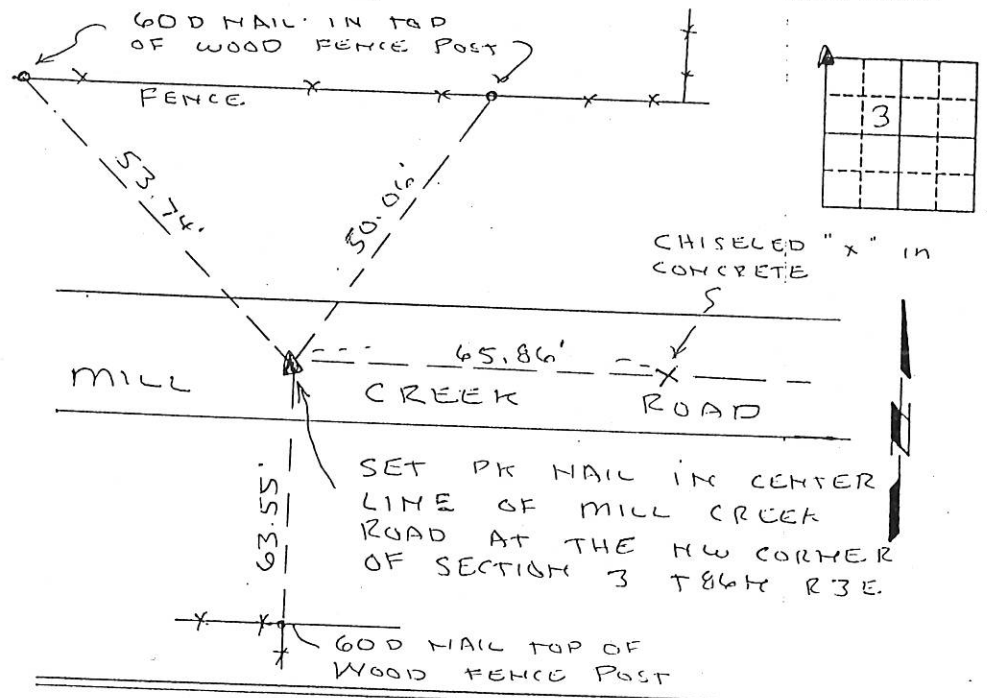 60D NAIL IN TOP
OF WOOD FENCE POST
FENCE
3
53.74'
50.06'
CHISELED "X" in
CONCRETE
65.86'
MILL CREEK ROAD
63.55'
SET PK NAIL IN CENTER
LINE OF MILL CREEK
ROAD AT THE NW CORNER
OF SECTION 3 T86N R3E
60D NAIL TOP OF
WOOD FENCE POST